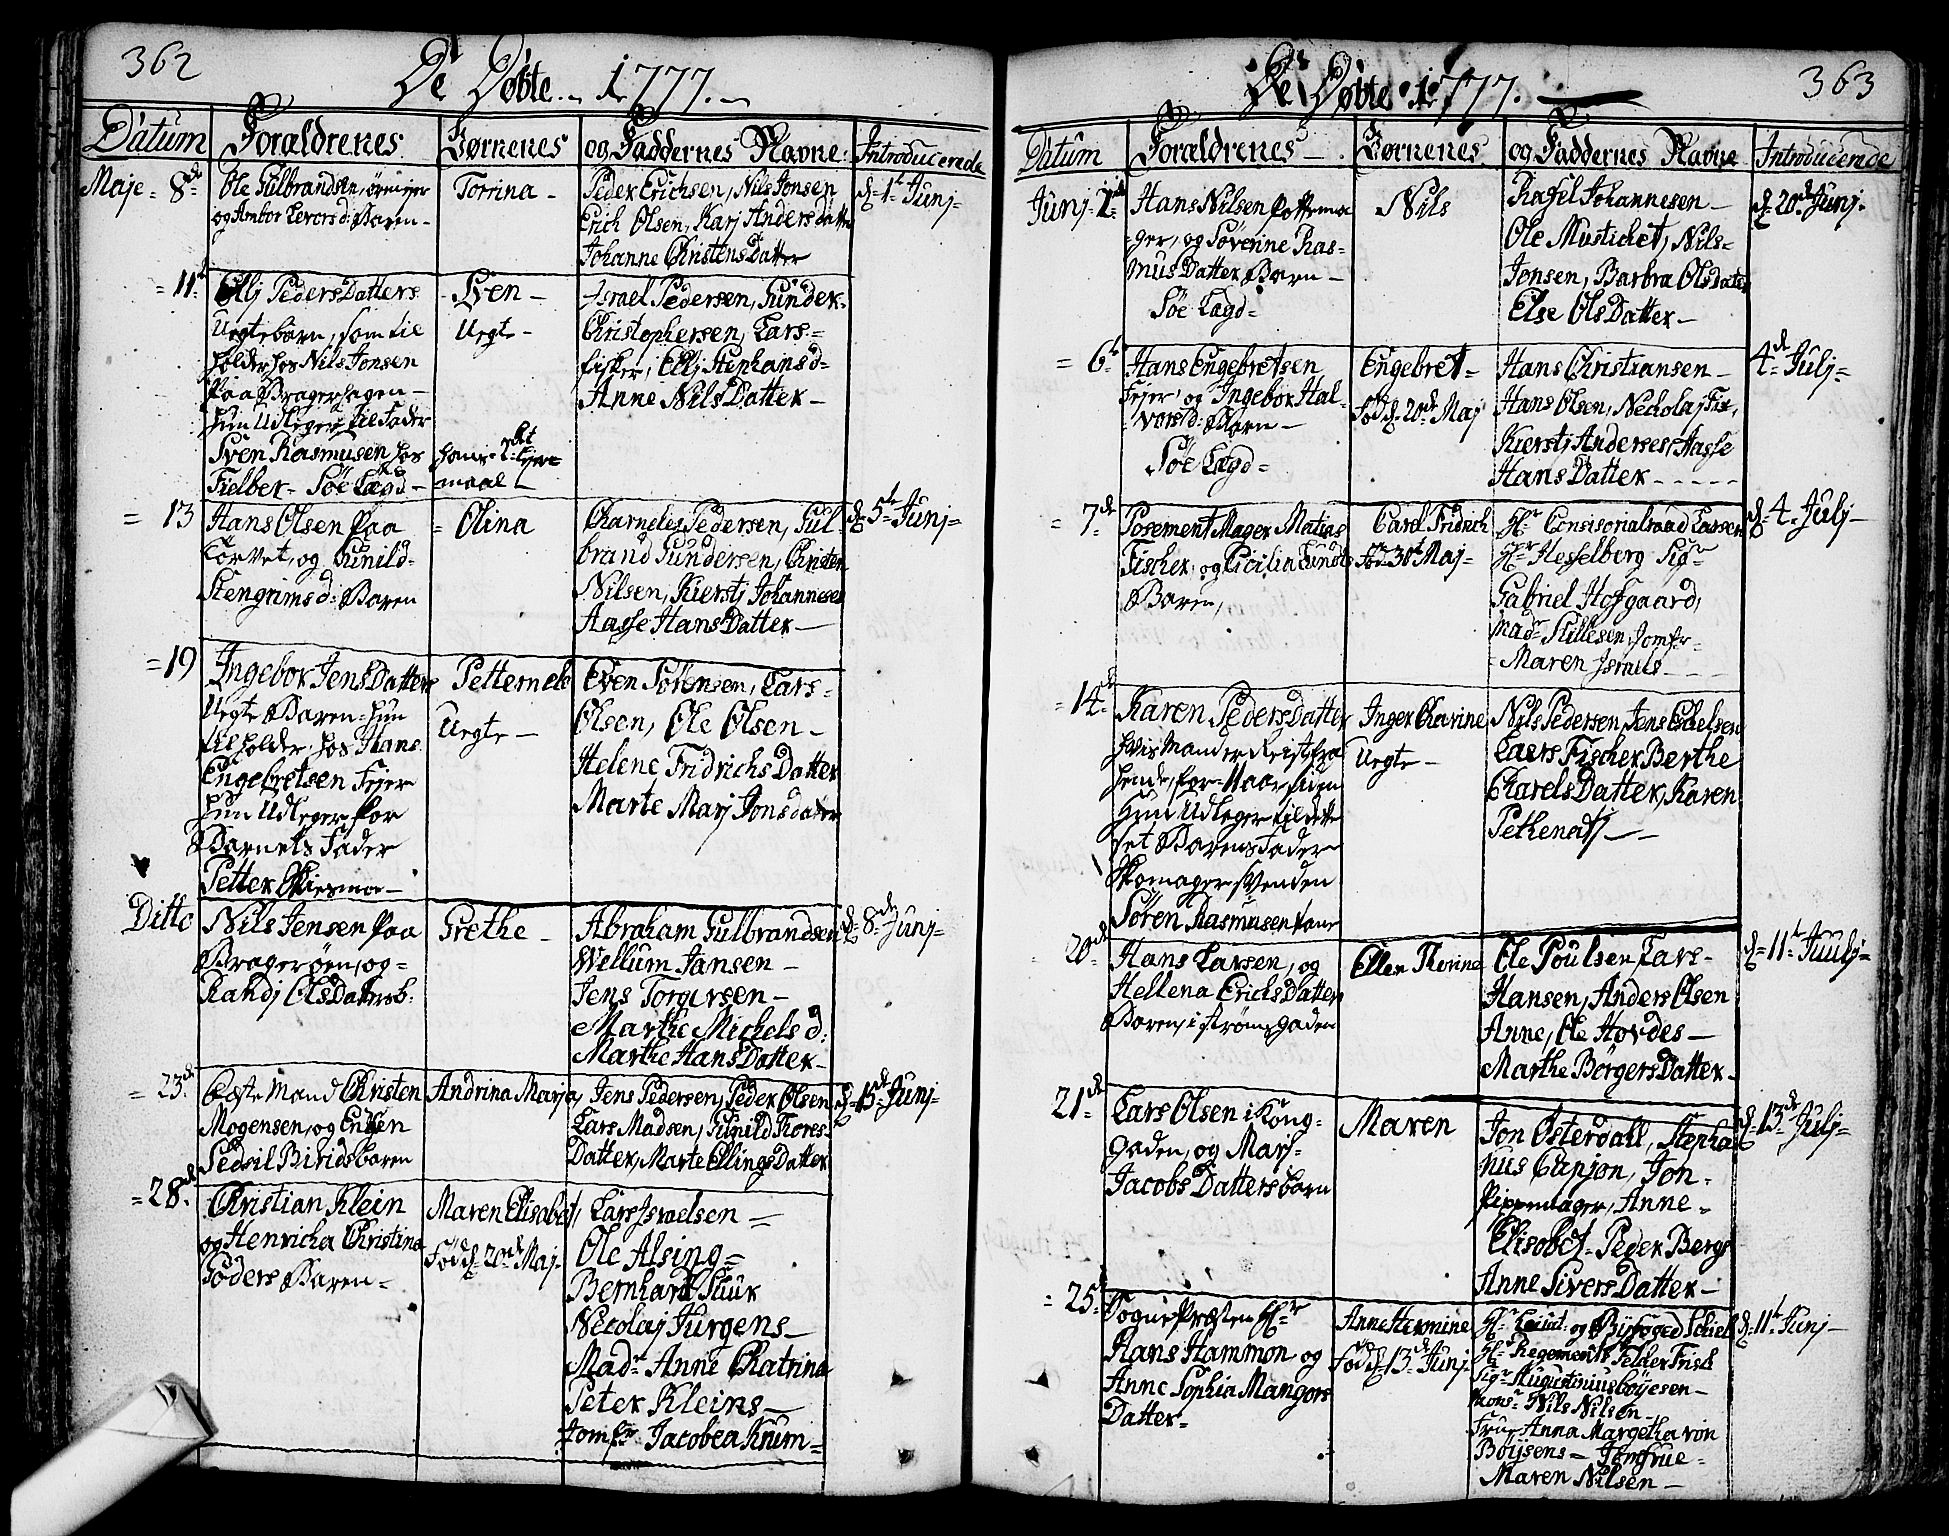 362
De Døbte 1777.
Datum Foraldrenes Børnenes og Faddernes Navne: Introducerede
Maje 8de Ole Gulbrandsen
og Ambor Levors d: Baren
Torrina
Peder Erichsen, Nils Jonsen
Erich Olsen, Karj Anders datter
Johanne Christens Datter
d. 1t Junj
11t Ellj Peders Datters
Uegtebarn, som til
holder hos Nils Jonsen
Paa Bragerhagen
hun Udleger til Fader
Sven Rasmusen hos
Fielber Söe Lægd
Sven
Uegte
hans
maal
Israel Pedersen, Gunder
Christophersen, Lars
Fisker, Ellj Stephans d
Anne Nils Datter
13 Hans Olsen Paa
Torvet, og Gunild
Stengrims d: Baren
Olina
Charnelies Pedersen, Gul
brand Gundersen, Christen
Nilsen, Kierstj Johannesen
Aasse Hans Datter
d. 5t Junj
19 Ingebor Jens Datters
Uegte Baren hun
tilholder hos Hans
Engebretsen Fejer
hun Udleger for
Barnets Fader
Petter
Petternele
Uegte
Even Sörensen, Lars
Olsen, Ole Olsen
Helene Fridrichs Datter
Marte Marj Jons datter
Ditto Nils Jensen Paa
Bragerøen, og
Randj Ols Datters b:
Grethe
Abraham Gulbrandsen
Wellum Jansen
Jens Torgersen
Marthe Michels d:
Marthe Hans Datter
d. 8de Junj
23de Mand Christen
Mogensen, og Enken
Sedsil Birids baren
Andrina Marja,
Jens Pedersen, Peder Olsen
Lars Madsen, Gunild Tores
Datter, Marte Ellings Datter
d. 15de Junj
28de Christian Klein
og Henricha Christina
Töders Baren
Maren Elisabet,
Föd d. 20de Maj
Lars Israelsen
Ole Alsing
Bernhard Stuur
Necolaj Jürgens
Madr Anne Chatrina
Peter Kleins
Jomfr Jacobea Krum
363
De Døbte 1777.
Datum Foraldrenes Børnenes og Faddernes Navne Introducerede
Junj Hans Nilsen Pottema
ger, og Söverine Ras
mus Datter Barn
Söe Lagd
Nils
Rafel Johannesen
Ole Mustichet, Nils
Jonsen, Barbra Ols Dater
Else Ols Datter
d. 20de Junj
6t Hans Engebretsen
Fejer, og Ingebor Hal
vors d: Barn
Söe Lagd
Engebret
Föd d. 20de Maj
Hans Christiansen
Hans Olsen, Neckolaj Fix,
Kierstj Anderses, Aasse
Hans Datter
4de Julj
7de Posement Mager Matias
Fischer, og Cicilin Lunds
Baren,
Carel Fridrich
Föd 30t Maj
Hr Consisorialraad Lassen
Hr Hesselberg Sigr
Gabriel Hofgaard,
Madr Stillesen, Jomfr
Maren Israels
d. 4. Julj
14de Karen Peders datter
hvis Mand er Reist fra
hende, for Aar siden
Hun Udleger til dette
sit Barens Fader
Skomager Svenden
Sören Rasmusen
Inger Charine
Uegte
Nils Pedersen, Jens Ebbelsen
Laers Fischer Berthe
Charels Datter, Karen
20de Hans Larsen, og
Hellena Erichs Datter
Baren, i Strömsgaden
Ellen Thorine
Ole Poulsen, Lars
Hansen, Anders Olsen
Anne, Ole Hovdes
Marthe Börgers Datter
d. 11t Juulj
21de Lars Olsen i Kong
gaden, og Marj
Jacobs Datters barn
Maren
Jon Osterdall, Stepha
nus Capjon, Jon
Pippemager, Anne
Elisobet Peder Bergs
Anne Sivers Datter
d. 13de Julj
25t Sogne Presten Hr
Hans Hammon og
Anne Sophia Mangors
Datter
Anne Hermine
Föd d. 13de Junj
Hr Leiut: og Byfoged Schiell
Hr Regements Felder Frisch
Sigr Augustinius böyesen
Monsr Nils Nilsen
Frue Anna Margetha von
Böysens Jomfrue
Maren Nilsen
d. 11t Junj